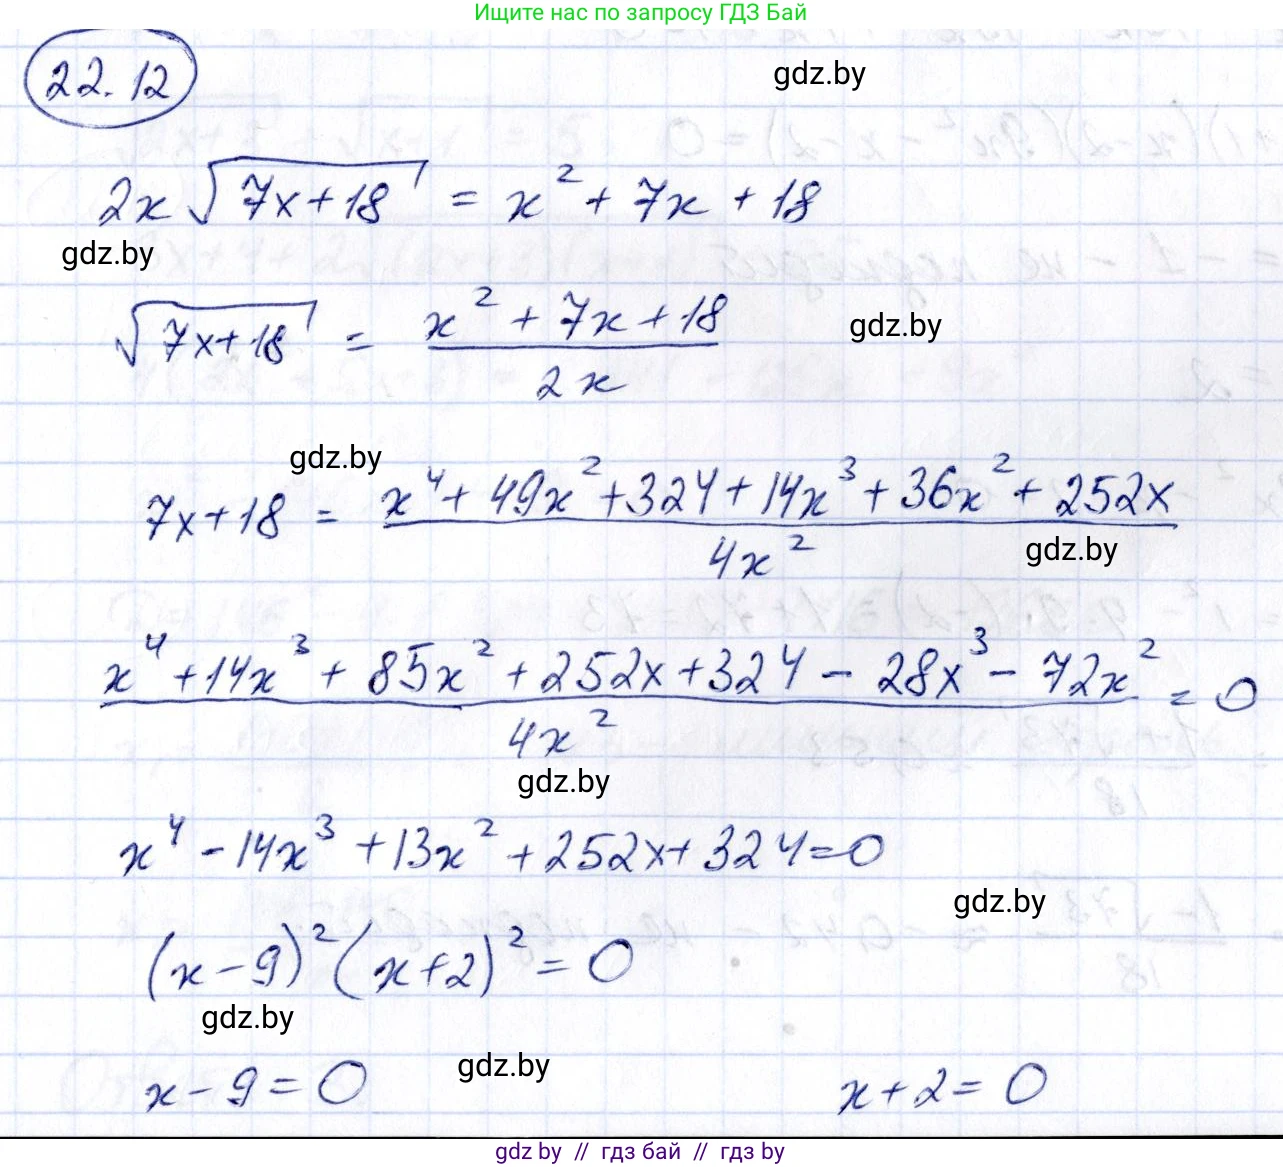 Ищите нас по запросу ГДЗ Бай
22.12
gdz.by
2x √(7x+18) = x² + 7x + 18
gdz.by
√(7x+18) = (x² + 7x + 18) / (2x)
gdz.by
gdz.by
7x+18 = (x⁴ + 49x² + 324 + 14x³ + 36x² + 252x) / (4x²)
gdz.by
(x⁴ + 14x³ + 85x² + 252x + 324 - 28x³ - 72x²) / (4x²) = 0
gdz.by
x⁴ - 14x³ + 13x² + 252x + 324 = 0
gdz.by
(x-9)² (x+2)² = 0
gdz.by
gdz.by
x - 9 = 0 x + 2 = 0
gdz by // гдз бай // гдз by